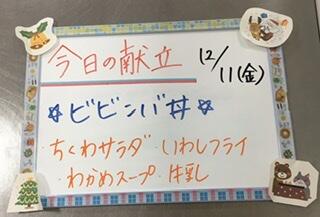 今日の献立
12/11(金)
☆ビビンバ丼☆
・ちくわサラダ・いわしフライ
・わかめスープ・牛乳